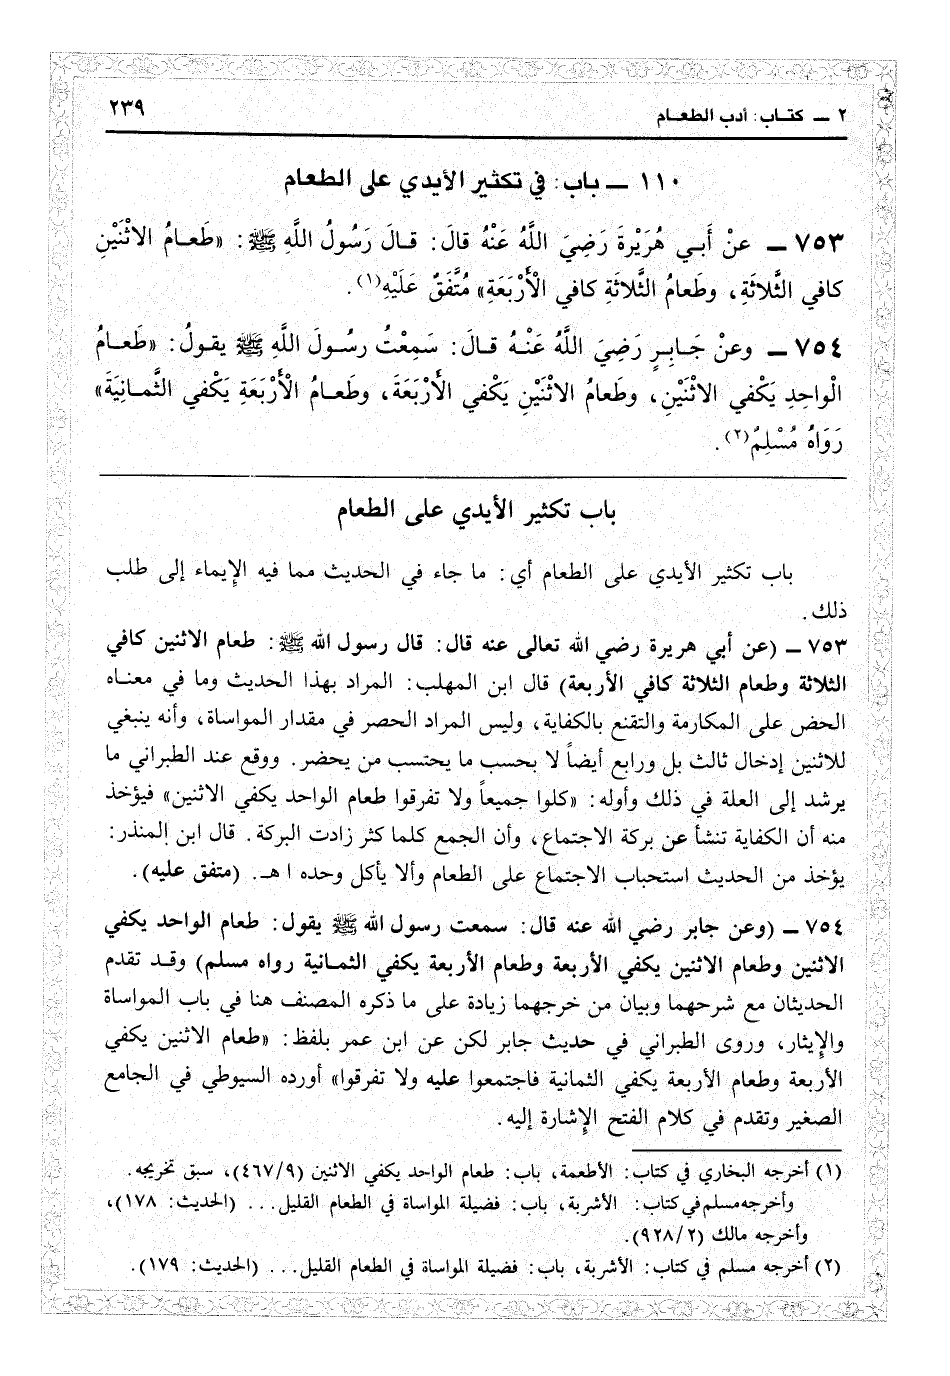 ٢ ــ كتــاب: أدب الطعــام
٢٣٩
١١٠ ــ بـاب: في تكثير الأيدي على الطعام
٧٥٣ ــ عنْ أَبـي هُرَيْرةَ رَضِيَ اللَّهُ عَنْهُ قالَ: قـالَ رَسُولُ اللَّهِ ﷺ: «طَعـامُ الاثْنَيْنِ
كافي الثَّلاثَةِ، وطَعامُ الثَّلاثَةِ كافي الْأَرْبَعَةِ» مُتَّفَقٌ عَلَيْهِ(١).
٧٥٤ ــ وعنْ جَـابِـرٍ رَضِيَ اللَّهُ عَنْـهُ قـالَ: سَمِعْتُ رسُـولَ اللَّهِ ﷺ يقـولُ: «طَعـامُ
الْواحِدِ يَكْفي الاثْنَيْنِ، وطَعامُ الاثْنَيْنِ يَكْفي الْأَرْبَعَةَ، وطَعـامُ الْأَرْبَعَةِ يَكْفي الثَّمـانِيَةَ»
رَوَاهُ مُسْلِمٌ(٢).
باب تكثير الأيدي على الطعام
باب تكثير الأيدي على الطعام أي: ما جاء في الحديث مما فيه الإيماء إلى طلب
ذلك.
٧٥٣ ــ (عن أبي هريرة رضي الله تعالى عنه قال: قال رسول الله ﷺ: طعام الاثنين كافي
الثلاثة وطعام الثلاثة كافي الأربعة) قال ابن المهلب: المراد بهذا الحديث وما في معنـاه
الحض على المكارمة والتقنع بالكفاية، وليس المراد الحصر في مقدار المواساة، وأنه ينبغي
للاثنين إدخال ثالث بل ورابع أيضاً لا بحسب ما يحتسب من يحضر. ووقع عند الطبراني ما
يرشد إلى العلة في ذلك وأوله: «كلوا جميعاً ولا تفرقوا طعام الواحد يكفي الاثنين» فيؤخذ
منه أن الكفاية تنشأ عن بركة الاجتماع، وأن الجمع كلما كثر زادت البركة. قال ابن المنذر:
يؤخذ من الحديث استحباب الاجتماع على الطعام وألا يأكل وحده ا هـ. (متفق عليه).
٧٥٤ ــ (وعن جابر رضي الله عنه قال: سمعت رسول الله ﷺ يقول: طعام الواحد يكفي
الاثنين وطعام الاثنين يكفي الأربعة وطعام الأربعة يكفي الثمـانية رواه مسلم) وقـد تقدم
الحديثان مع شرحهما وبيان من خرجهما زيادة على ما ذكره المصنف هنا في باب المواساة
والإيثار، وروى الطبراني في حديث جابر لكن عن ابن عمر بلفظ: «طعام الاثنين يكفي
الأربعة وطعام الأربعة يكفي الثمانية فاجتمعوا عليه ولا تفرقوا» أورده السيوطي في الجامع
الصغير وتقدم في كلام الفتح الإشارة إليه.
(١) أخرجه البخاري في كتاب: الأطعمة، باب: طعام الواحد يكفي الاثنين (٤٦٧/٩)، سبق تخريجه.
وأخرجه مسلم في كتاب: الأشربة، باب: فضيلة المواساة في الطعام القليل... (الحديث: ١٧٨)،
وأخرجه مالك (٩٢٨/٢).
(٢) أخرجه مسلم في كتاب: الأشربة، باب: فضيلة المواساة في الطعام القليل... (الحديث: ١٧٩).